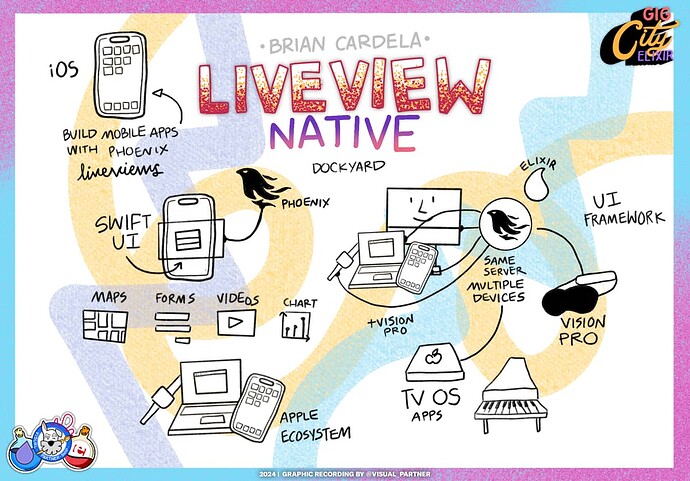 • BRIAN CARDELA •
LIVEVIEW
NATIVE
DOCKYARD
GIG
City
ELIXIR
iOS
BUILD MOBILE APPS
WITH PHOENIX
liveviews
SWIFT
UI
PHOENIX
MAPS
FORMS
VIDEOS
CHART
APPLE
ECOSYSTEM
ELIXIR
UI
FRAMEWORK
SAME
SERVER
MULTIPLE
DEVICES
+VISION
PRO
VISION
PRO
TV OS
APPS
2024 | GRAPHIC RECORDING BY @VISUAL_PARTNER